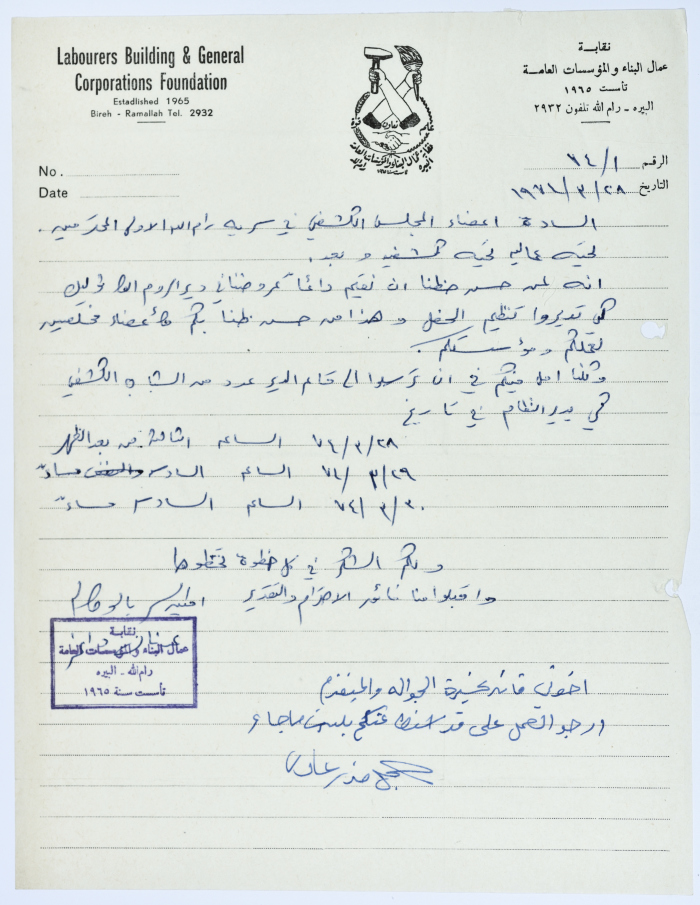 Labourers Building & General
Corporations Foundation
Estadlished 1965
Bireh - Ramallah Tel. 2932
نقابة
عمال البناء والمؤسسات العامة
تأسست ١٩٦٥
البيره - رام الله تلفون ٢٩٣٢
تعاون
No.
Date
الرقم ٧٤/١
التاريخ ١٩٧٤/٣/٢٨
السادة اعضاء المجلس الكشفي في سرية رام الله الاولى المحترمين .
تحية عمالية تحية كشفية وبعد .
انه لمن حسن حظنا ان نقيم دائماً
كي تديروا تنظيم الحفل وهذا من حسن ظننا بكم كأعضاء مخلصين
لعملكم ومؤسستكم .
وكلنا امل منكم في ان ترسلوا الى قاعة الدير عدد من الشباب الكشفي
كي يدير النظام في تاريخ
٧٤/٣/٢٨ الساعة الثالثة من بعد الظهر
٧٤/٣/٢٩ الساعة السادسة مساءً
٧٤/٣/٣٠ الساعة السادسة مساءً
ولكم الشكر في كل خطوة تخطوها
واقبلوا منا فائق الاحترام والتقدير
نقابة
عمال البناء والمؤسسات العامة
رام الله - البيره
تأسست سنة ١٩٦٥
اخوتي قائد عشيرة الجواله والمتقدم
ارجو العمل على قدر استطاعتكم